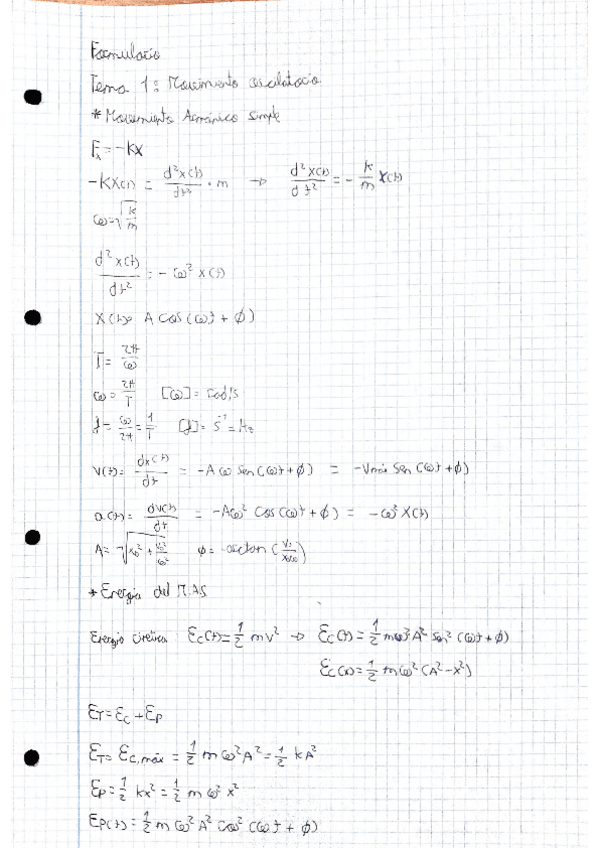 Formulario
Tema 1: Movimiento oscilatorio
* Movimiento Armónico Simple
Fₓ = -kx
-kx(t) = d²x(t)/dt² · m → d²x(t)/dt² = - k/m x(t)
ω = √(k/m)
d²x(t)/dt² = - ω² x(t)
x(t) = A cos(ωt + φ)
T = 2π/ω
ω = 2π/T [ω] = rad/s
f = ω/2π = 1/T [f] = s⁻¹ = Hz
v(t) = dx(t)/dt = -Aω sen(ωt + φ) = -Vmáx sen(ωt + φ)
a(t) = dv(t)/dt = -Aω² cos(ωt + φ) = -ω² x(t)
A = √(x₀² + v₀²/ω²) φ = -arctan(v₀/x₀ω)
* Energía del M.A.S
Energía cinética: Ec(t) = 1/2 mv² → Ec(t) = 1/2 mω² A² sen²(ωt + φ)
Ec(x) = 1/2 mω² (A² - x²)
ET = Ec + Ep
ET = Ec,máx = 1/2 mω²A² = 1/2 kA²
Ep = 1/2 kx² = 1/2 mω² x²
Ep(t) = 1/2 mω² A² cos²(ωt + φ)